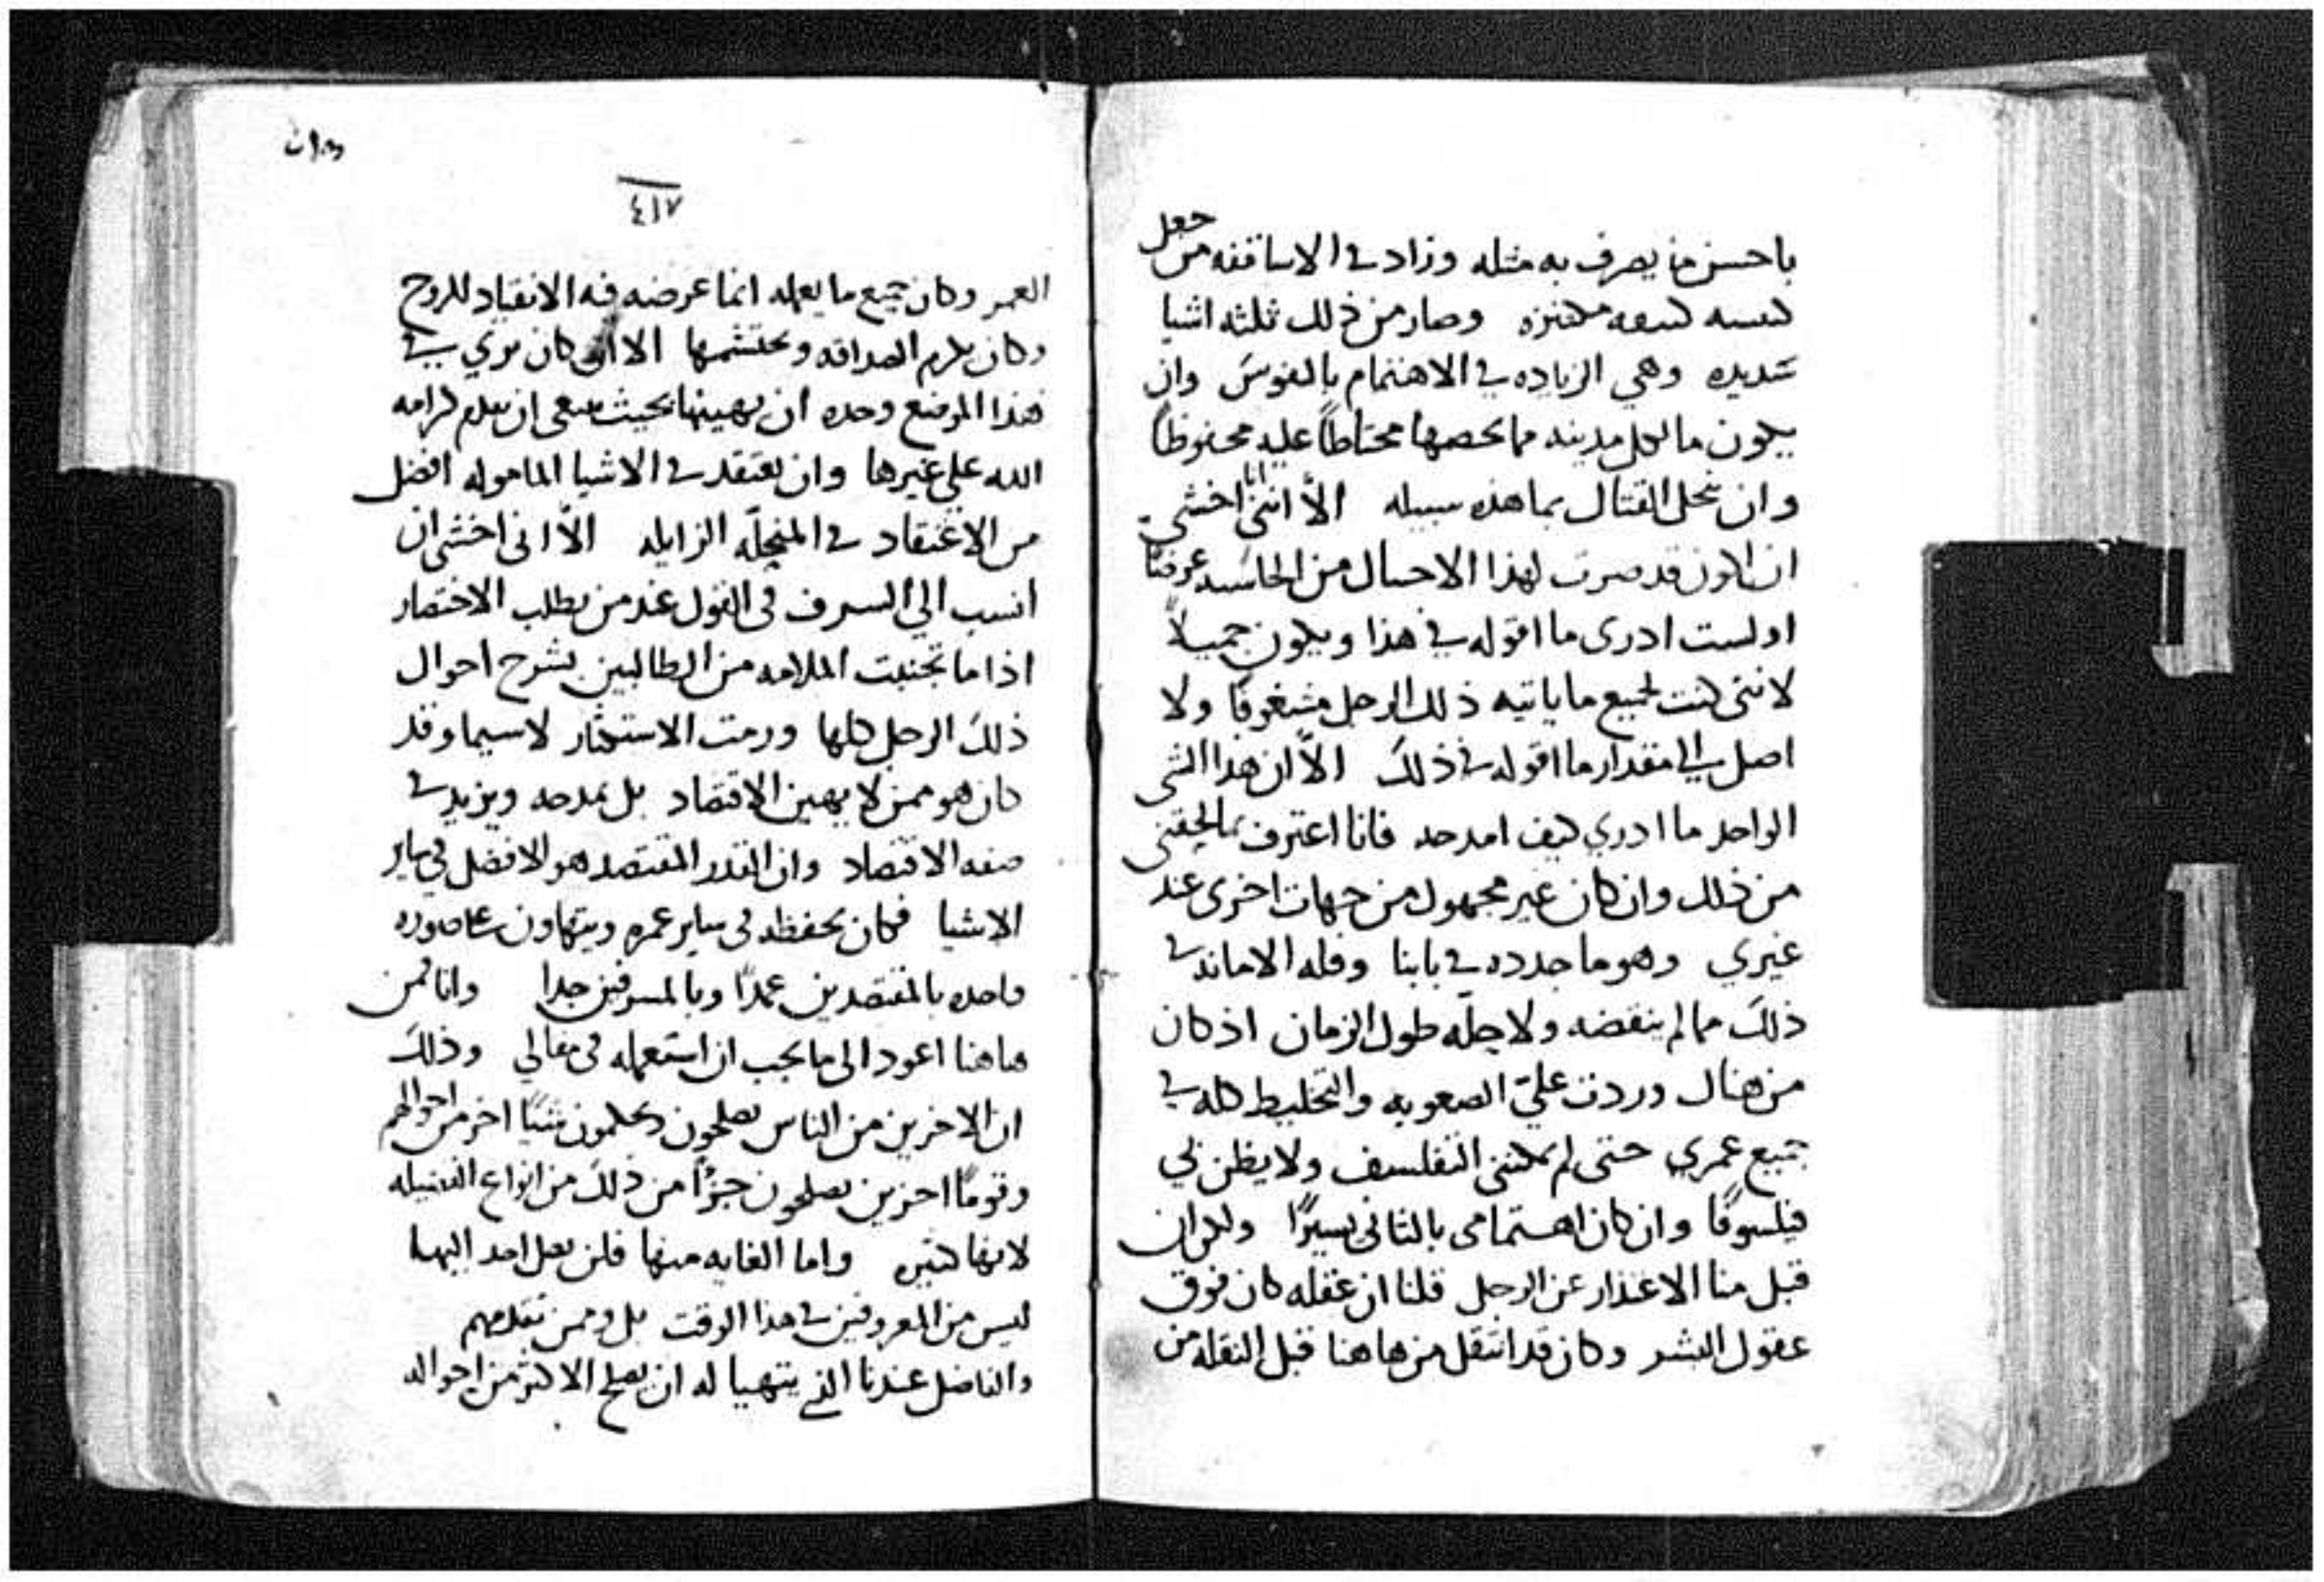 جعل
باحسن ما يصرف به مثله وزاد في الاساقفه من
كنيسه مكتنزه وصار من ذلك ثلثه اشيا
شديده وهي الزياده في الاهتمام بالنفوس وان
يكون ما لكل مدينه مما يخصها محتاطاً عليه محفوظاً
وان ينحل القتال بما هذه سبيله الاّ انني انا اخشى
ان اكون قد صرت لهذا الاحسان من الحاسد عرضاً
او لست ادرى ما اقوله في هذا ويكون جميلاً
لانني كنت لجميع ما ياتيه ذلك الرجل مشغوفاً ولا
اصل الي مقدار ما اقوله في ذلك الاّ ان هذا الشي
الواحد ما ادري كيف امدحه فانا اعترف بما لحقني
من ذلك وان كان غير مجهول من جهات اخرى عند
غيري وهو ما جدده في بابنا وقله الامانه في
ذلك مما لم ينقضه ولا حله طول الزمان اذ كان
من هناك وردت علي الصعوبه والتخليط كله في
جميع عمري حتى لم يمكنني التفلسف ولا يظن لي
فيلسوفاً وان كان اهتمامى بالثانى يسيراً ولكن ان
قبل منا الاعتذار عن الرجل قلنا ان عقله كان فوق
عقول البشر وكان قد انتقل من هاهنا قبل النقله من
٤١٧
العمر وكان جميع ما يعمله انما غرضه فيه الانقياد للروح
وكان يكرم الصداقه ويحتشمها الا انه كان يرى في
هذا الموضع وحده ان يهينها بحيث ينبغى ان يقدم كرامه
الله علي غيرها وان يعتقد في الاشيا المامولة افضل
من الاعتقاد في المنحلّه الزايله الاّ انى اخشى ان
انسب الي السرف فى القول عند من يطلب الاختصار
اذا ما تجنبت الملامه من الطالبين بشرح احوال
ذلك الرجل كلها ورمت الاستكثار لاسيما وقد
كان هو ممن لا يهين الاقتصاد بل يمدحه ويزيد في
صفه الاقتصاد وان القدر المقتصد هو الافضل في ساير
الاشيا فكان يحفظه فى ساير عمره ويتهاون
بالمقتصدين عمداً وبالمسرفين جدا وانا فمن
هاهنا اعود الى ما يجب ان استعمله فى مقالي وذلك
ان الاخرين من الناس يصلحون ويحكمون شياً اخر من احوالهم
وقوماً اخرين يصلحون جزاً من ذلك من انواع الفضيله
لانها كثيره واما الغايه منها فلن يصل احد اليها
ليس من المعروفين في هذا الوقت بل وممن تقدمهم
والفاضل عندنا الذي يتهيا له ان يصلح الاكثر من احواله